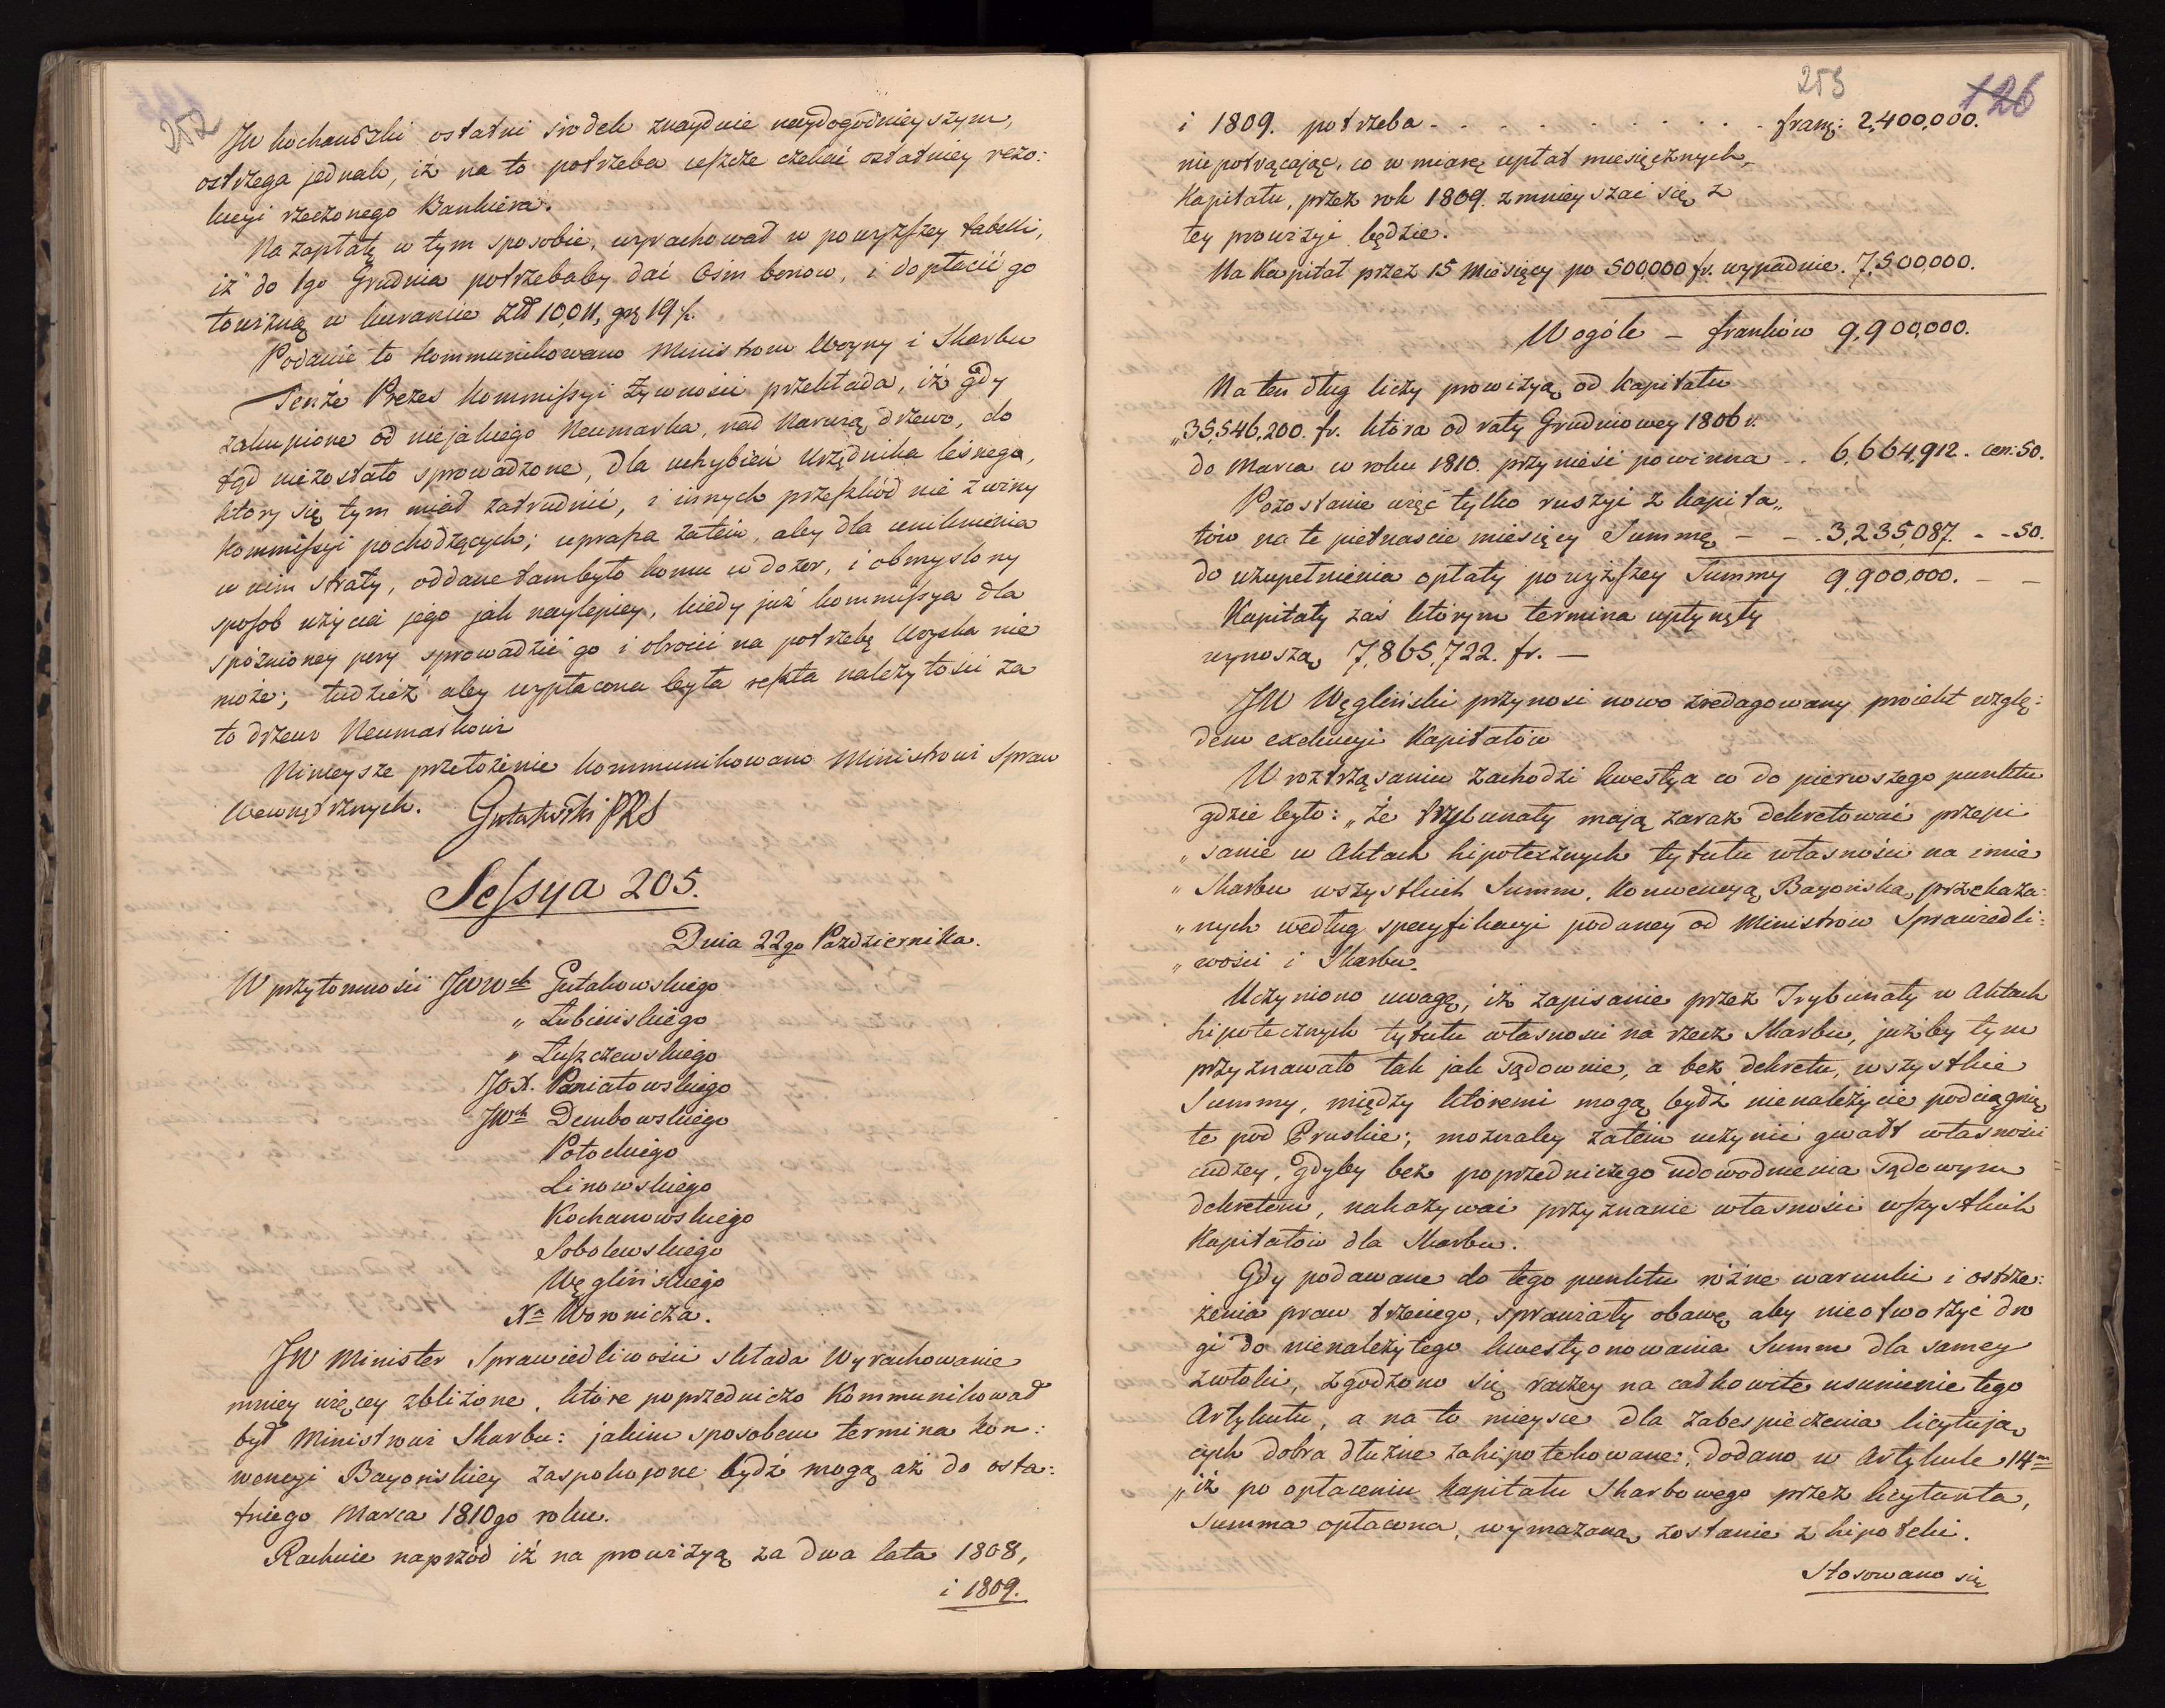 252
JW Kochanowski ostatni środek znayduie naydogodnieyszym,
ostrzega jednak, iż na to potrzeba ieszcze czekać ostatniey rezo:
lucyi rzeczonego Bankiera.
Na zapłatę w tym sposobie, wyrachował w powyższey tabelli,
iż do 1go Grudnia potrzebaby dać Osim bonow, i dopłacić go
towizną w kurancie Złł 10,011, gr 19
Podanie to kommunikowano Ministrom Woyny i Skarbu
Tenże Prezes Kommissyi Żywności przekłada, iż gdy
zakupione od niejakiego Neumarka, nad Narwią drzewo, do
tąd niezostało sprowadzone, dla uchybień Urzędnika leśnego,
ktory się tym miał zatrudnić, i innych przeszkód nie z winy
Kommissyi pochodzących; uprasza zatem, aby dla uniknienia
w nim straty, oddane tam było komu w dozor, i obmyslony
sposob użycia jego jak naylepiey, kiedy już kommissya dla
spóznioney pory sprowadzić go i obrocić na potrzebę Woyska nie
może; tudzież aby wypłacona była reszta należytości za
to drzewo Neumarkowi
Ninieysze przełożenie kommunikowano Ministrowi Spraw
Wewnętrznych. Gutakowski PRS
Sessya 205.
Dnia 22go Pazdziernika.
W przytomności JWWch Gutakowskiego
„ Łubienskiego
„ Łuszczewskiego
JOX. Poniatowskiego
JWch Dembowskiego
Potockiego
Linowskiego
Kochanowskiego
Sobolewskiego
Węglińskiego
Xa Woronicza.
JW Minister Sprawiedliwości składa Wyrachowanie
mniey więcey zbliżone, które poprzedniczo Kommunikował
był Ministrowi Skarbu: jakim sposobem termina Kon:
wencyi Bayońskiey zaspokojone bydź mogą aż do osta:
tniego Marca 1810go roku.
Rachuie naprzód iż na prowizyą za dwa lata 1808,
i 1809.
253
126
i 1809. potrzeba - - - - - - - - - - frank: 2,400,000.
niepotrącając, co w miarę upłat miesięcznych
Kapitału, przez rok 1809. zmnieyszać się z
tey prowizyi będzie.
Na Kapitał przez 15 Miesięcy po 500,000 fr. wypadnie. 7,500,000.
Wogóle - franków 9,900,000.
Na ten dług liczy prowizyą od kapitału
„35,546,200. fr. która od raty Grudniowey 1806 r.
do Marca w roku 1810. przynieść powinna - - 6,664,912. cen: 50.
Pozostanie więc tylko ruszyć z kapita„
łów na te pietnascie miesięcy Summę - - - 3,235,087. - - 50.
do uzupełnienia opłaty powyższey Summy 9,900,000. - -
Kapitały zaś którym termina upłynęły
wynoszą 7,865,722. fr. —
JW Węgliński przynosi nowo zredagowany proiekt wzglę:
dem exekucyi Kapitałów
W roztrząsaniu zachodzi kwestya co do pierwszego punktu
gdzie było: „Że trybunały mają zaraz dekretować przepi
„sanie w Aktach hipotecznych tytułu własności na imie
„Skarbu wszystkich Summ, Konwencyą Bayońską przekaza:
„nych według specyfikacyi podaney od Ministrów Sprawiedli:
„wości i Skarbu.
Uczyniono uwagę, iż zapisanie przez Trybunały w Aktach
hipotecznych tytułu własności na rzecz Skarbu, jużby tym
przyznawało tak jak sądownie, a bez dekretu, wszystkie
Summy, między któremi mogą bydź nienależycie podciągnię
te pod Pruskie; możnaby zatem uczynić gwałt własności
cudzey, gdyby bez poprzedniczego udowodnienia sądowym
dekretem, nakazywać przyznanie własności wszystkich
Kapitałów dla Skarbu.
Gdy podawane do tego punktu różne warunki i ostrze:
żenia praw trzeciego, sprawiały obawę, aby nieotworzyć dro
gi do nienależytego kwestyonowania Summ dla samey
zwłoki, zgodzono się raczey na całkowite usunienie tego
Artykułu, a na to mieysce dla zabespieczenia licytują
cych dobra dłużne zahipotekowane; dodano w Artykule 14m
„iż po opłaceniu Kapitału Skarbowego przez licytanta,
Summa opłacona, wymazaną zostanie z hipoteki.
Stosowano się